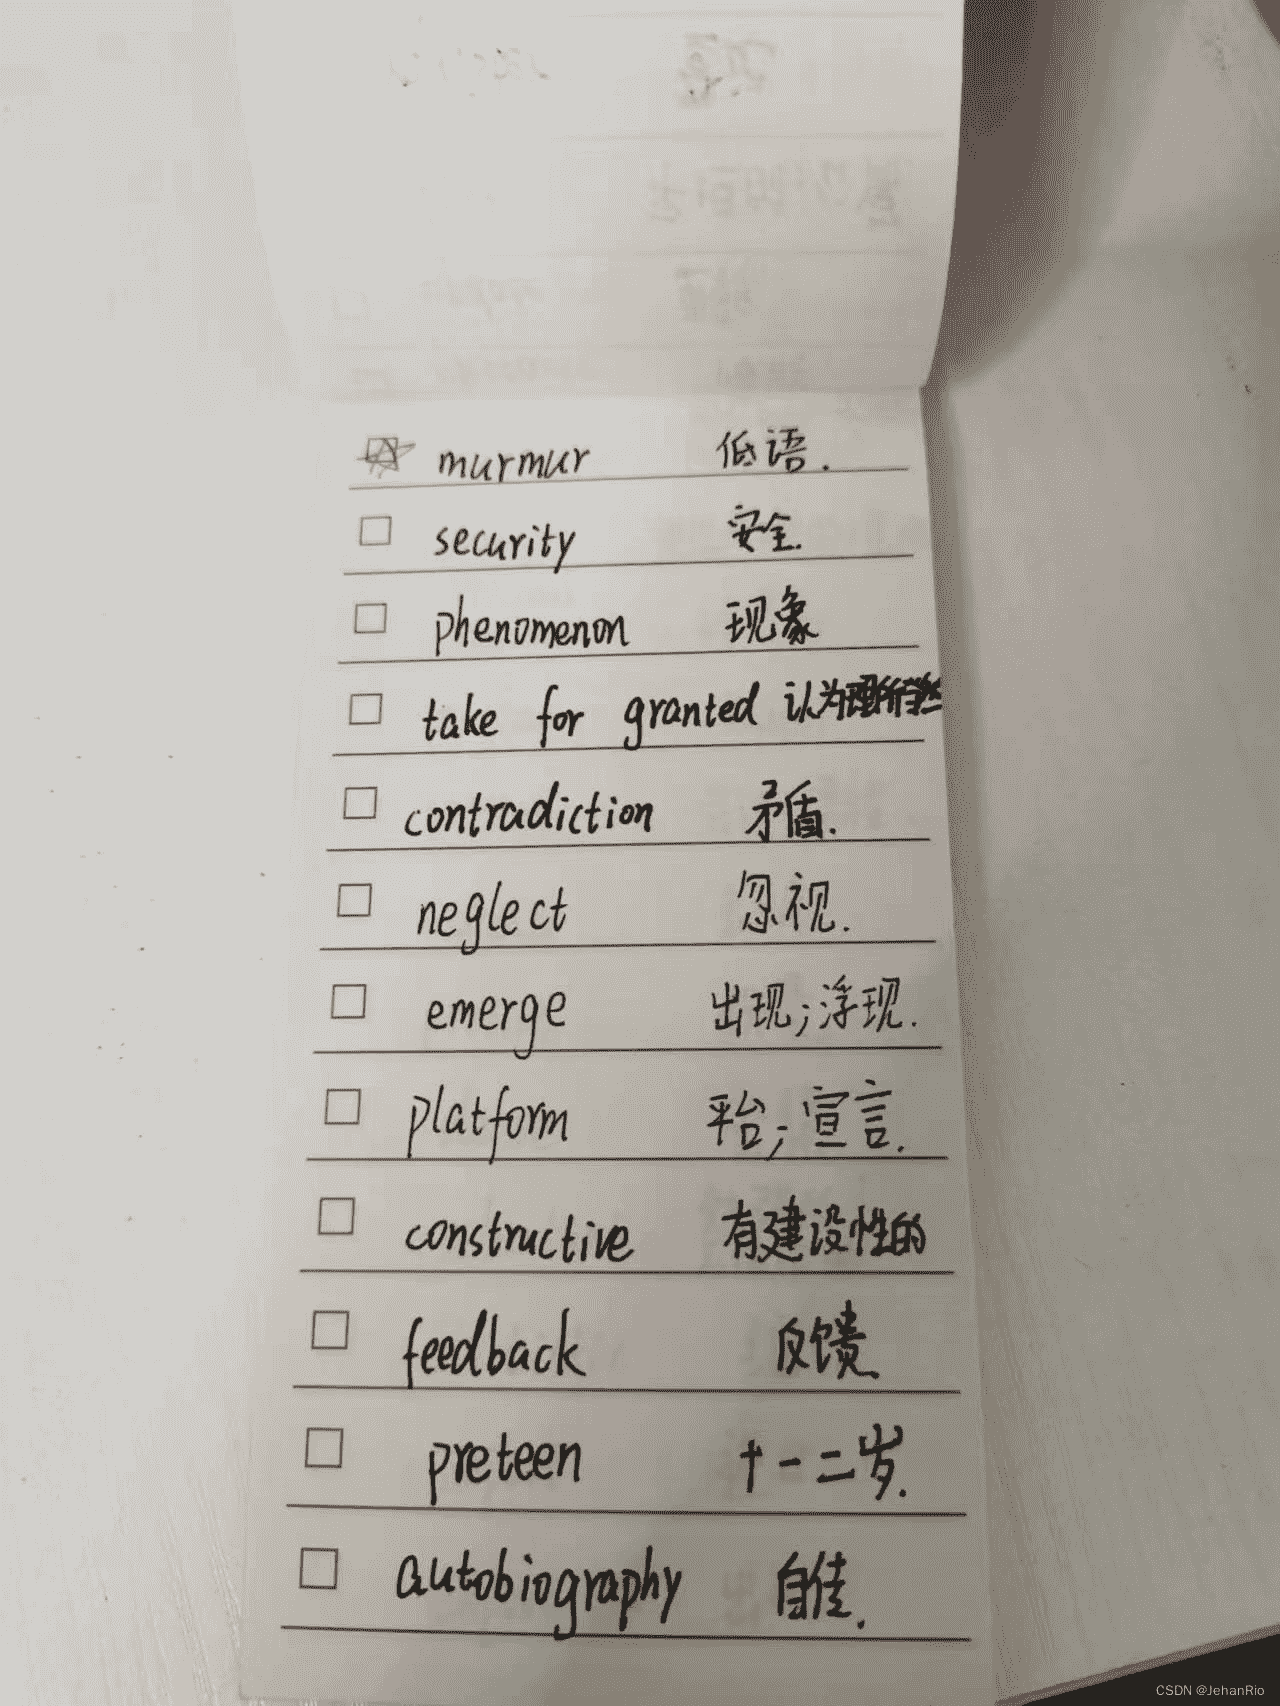 murmur 低语.
security 安全.
phenomenon 现象
take for granted 认为理所当然
contradiction 矛盾.
neglect 忽视.
emerge 出现;浮现.
platform 平台;宣言.
constructive 有建设性的
feedback 反馈.
preteen 十一二岁.
autobiography 自传.
CSDN @JehanRio